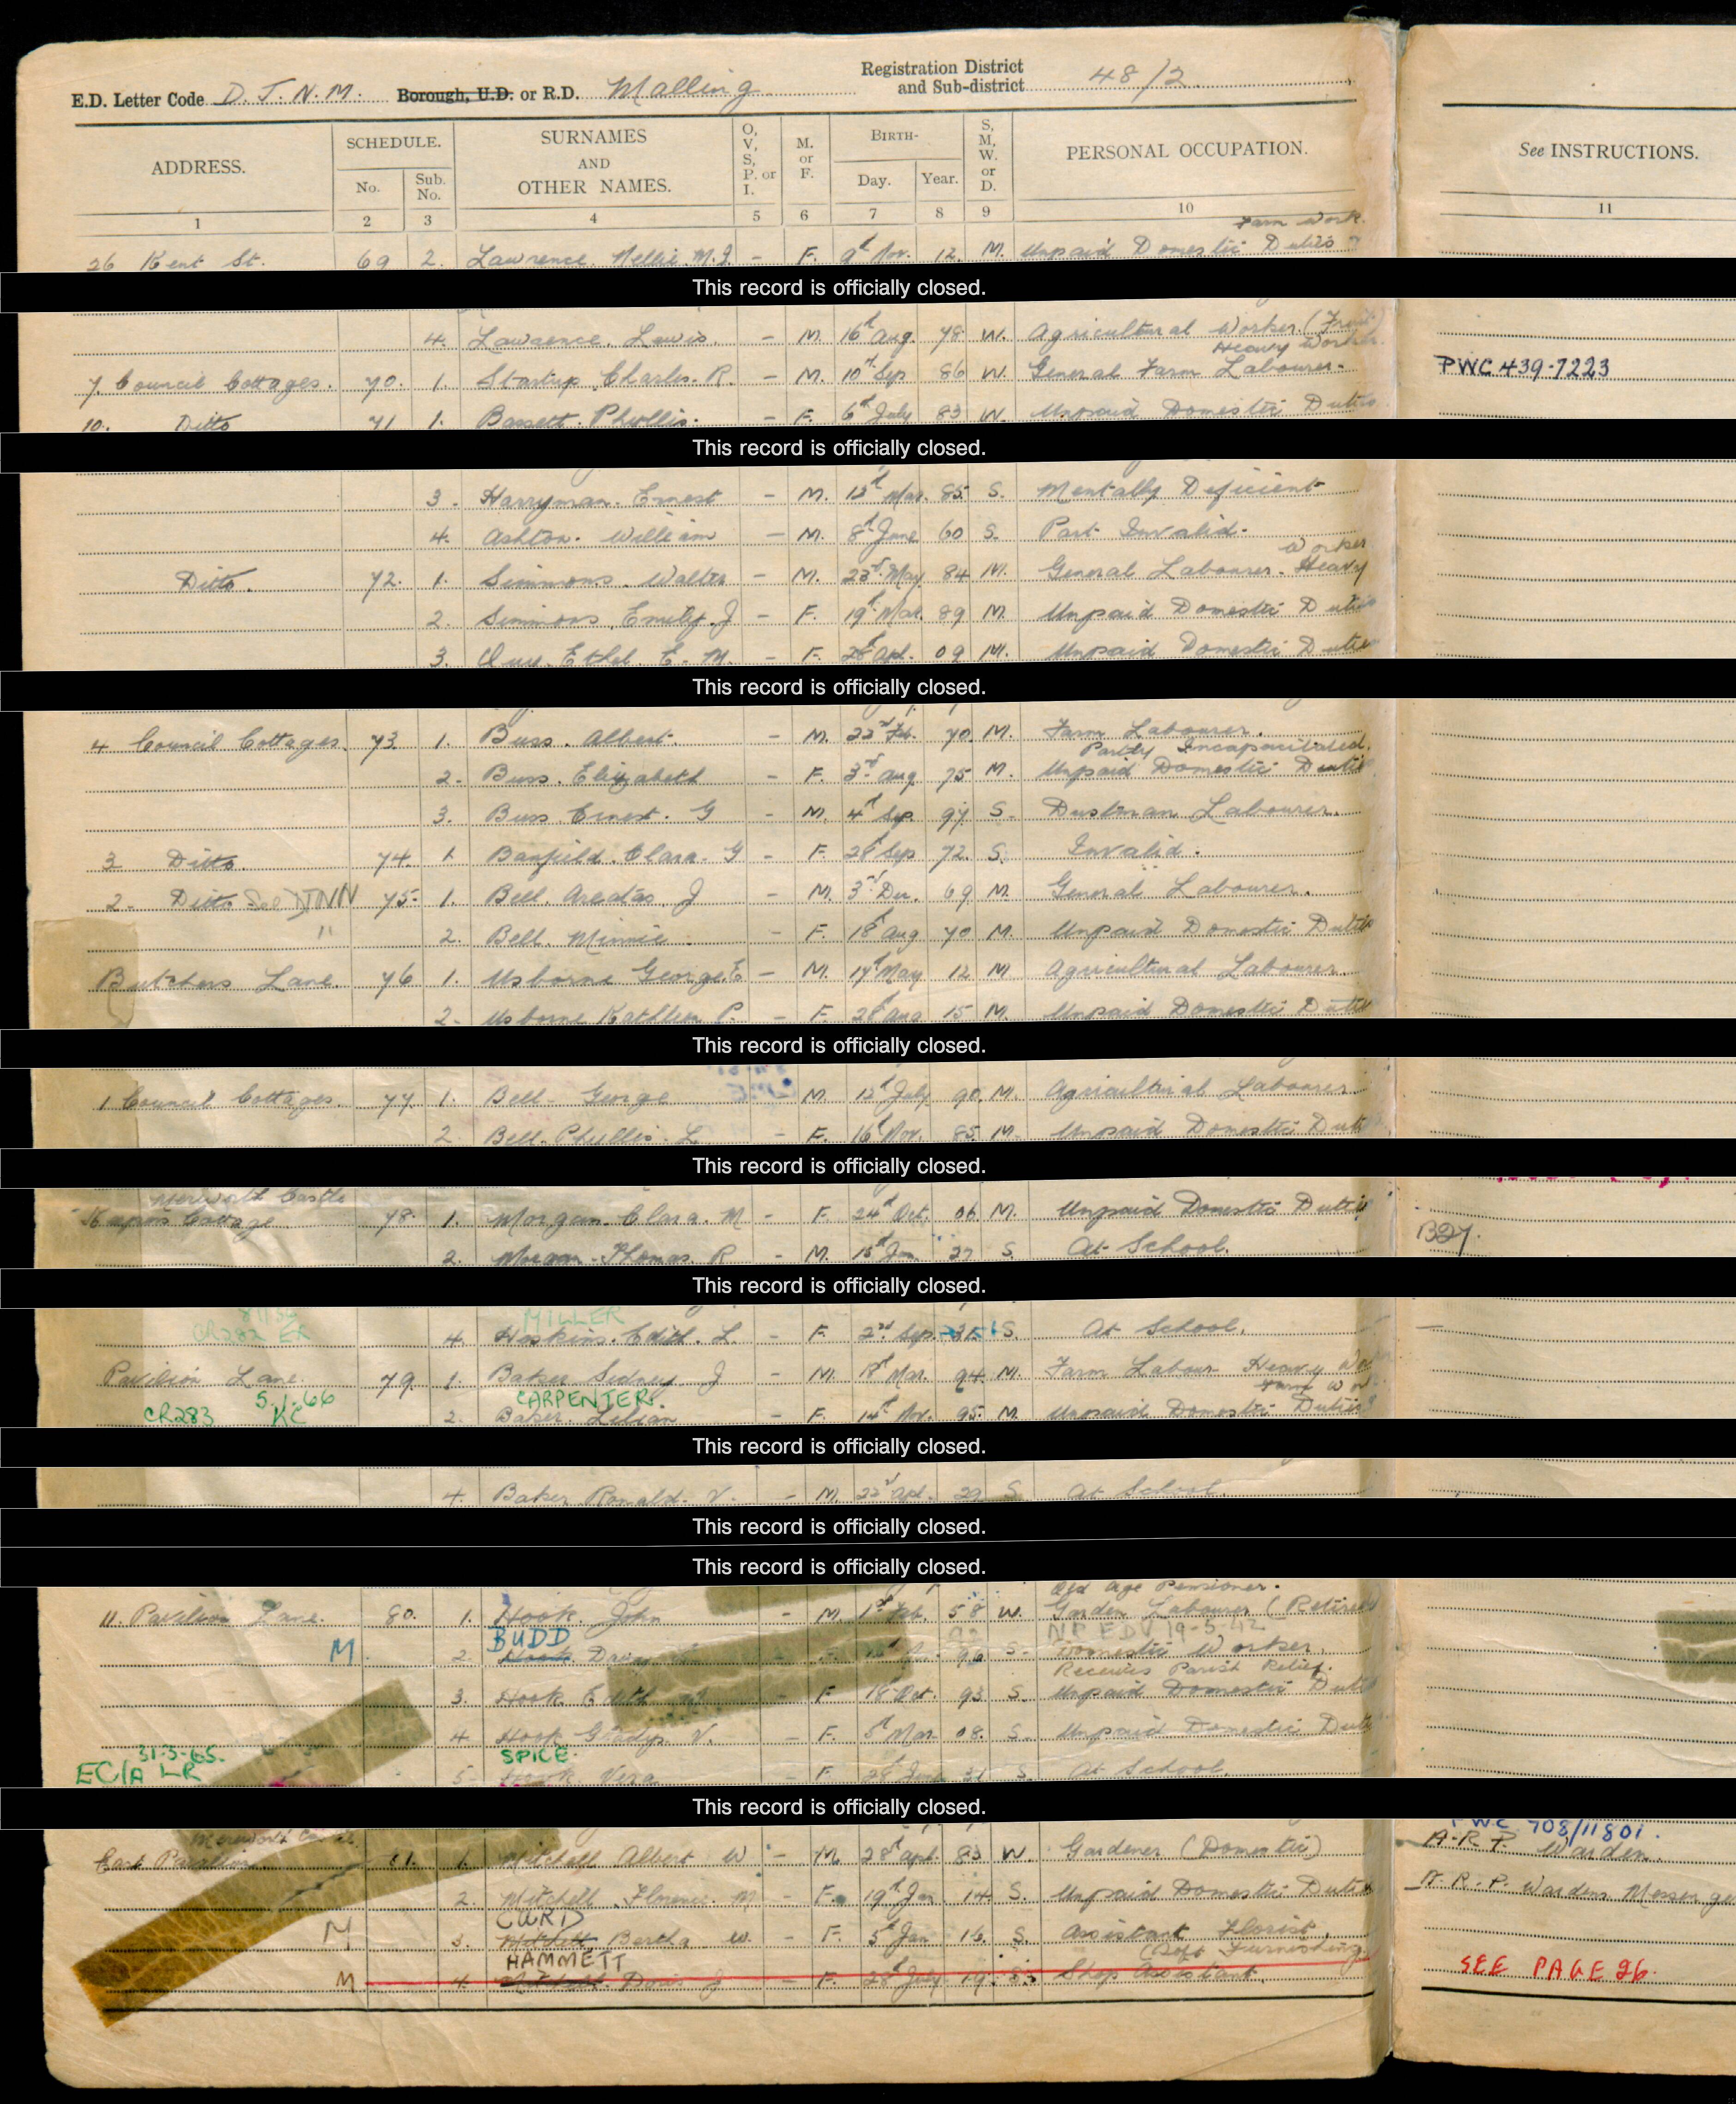 E.D. Letter Code D.J.N.M. Borough, U.D. or R.D. Malling Registration District and Sub-district 48/2
ADDRESS. SCHEDULE. No. Sub. No. SURNAMES AND OTHER NAMES. O, V, S, P. or I. M. or F. BIRTH- Day. Year. S, M, W. or D. PERSONAL OCCUPATION. See INSTRUCTIONS.
1 2 3 4 5 6 7 8 9 10 11
Farm Work.
26 Kent St. 69 2. Lawrence. Nellie. M.J. - F. 9th Nov. 12. M. Unpaid Domestic Duties
This record is officially closed.
4. Lawrence. Lewis. - M. 16th Aug. 78 W. Agricultural Worker. (Fruit)
Heavy Worker.
7 Council Cottages. 70. 1. Startup. Charles. R. - M. 10th Sep 86 W. General Farm Labourer. PWC 439-7223
10. Ditto 71 1. Bassett. Phyllis. - F. 6th July 83 W. Unpaid Domestic Duties
This record is officially closed.
3. Harryman. Ernest - M. 13th Mar. 85 S. Mentally Deficient
4. Ashton. William - M. 8th June 60 S. Part Invalid.
Worker
Ditto. 72. 1. Simmons. Walter - M. 23rd May 84 M. General Labourer. Heavy
2. Simmons. Emily. J - F. 19th Mar. 89 M. Unpaid Domestic Duties
3. Ethel. E. M. - F. 28th Apl. 09 M. Unpaid Domestic Duties
This record is officially closed.
4 Council Cottages. 73 1. Buss. Albert. - M. 22nd Feb. 70. M. Farm Labourer.
Partly Incapacitated.
2. Buss. Elizabeth - F. 3rd Aug 75 M. Unpaid Domestic Duties
3. Buss Ernest. G - M. 4th Sep. 97. S. Dustman Labourer.
3 Ditto. 74. 1. Banfield. Clara. G - F. 28th Sep 72. S. Invalid.
2. Ditto See DJNN 75. 1. Bell. J - M. 3rd Dec. 69 M. General Labourer.
" 2. Bell. Minnie - F. 18th Aug 70 M. Unpaid Domestic Duties
Butchers Lane. 76 1. Usborne George. E - M. 17th May 12 M Agricultural Labourer.
2. Usborne Kathleen P. - F. 28th Aug 15 M. Unpaid Domestic Duties
This record is officially closed.
1 Council Cottages. 77. 1. Bell. George M. 12th July 90. M. Agricultural Labourer.
2. Bell. Phyllis. L - F. 16th Nov. 85 M. Unpaid Domestic Duties
This record is officially closed.
Mereworth Castle
Cottage 78 1. Morgan. Clara. M - F. 24th Oct. 06 M. Unpaid Domestic Duties
2. Morgan. Thomas. R - M. 15th Jan. 27 S. At School. B27.
This record is officially closed.
MILLER
CR282 ER 4. Hoskins. Edith. L. - F. 2nd Sep. S. At School.
Pavilion Lane. 79. 1. Baker Sidney J - M. 18th Mar. 94 M. Farm Labour Heavy
5.1.66 CARPENTER
CR283 KC 2. Baker. Lilian - F. 14th Nov. 95. M Unpaid Domestic Duties
This record is officially closed.
4. Baker Ronald. V. - M. 22nd Apl. 29 S At School.
This record is officially closed.
This record is officially closed.
Old Age Pensioner.
11. Pavilion Lane. 80. 1. Hook. John - M 1st Feb. 58 W. Garden Labourer (Retired)
BUDD NP EDV 19-5-42
M 2. Hook. - F. 96 S. Domestic Worker.
Receives Parish Relief.
3. Hook Edith - F 18th Oct. 93 S. Unpaid Domestic Duties
4. Hook Gladys V. - F. 5th Mar 08. S. Unpaid Domestic Duties
31-3-65. SPICE.
EC/A LR 5. Hook. Vera - F. 28th 31 S. At School.
This record is officially closed.
Mereworth PWC 708/11801.
East Pavilion. 81. 1. Mitchell Albert W - M. 28th Apl. 83 W. Gardener (Domestic) A.R.P. Warden.
2. Mitchell. Florence. M - F. 19th Jan 14 S. Unpaid Domestic Duties A.R.P. Wardens Messenger
CURD
M 3. Mitchell Bertha W. - F. 5th Jan 16. S. Assistant Florist
HAMMETT (Soft Furnishing)
M 4. Mitchell. Doris J - F. 28th July 19. S. Shop Assistant. SEE PAGE 26.